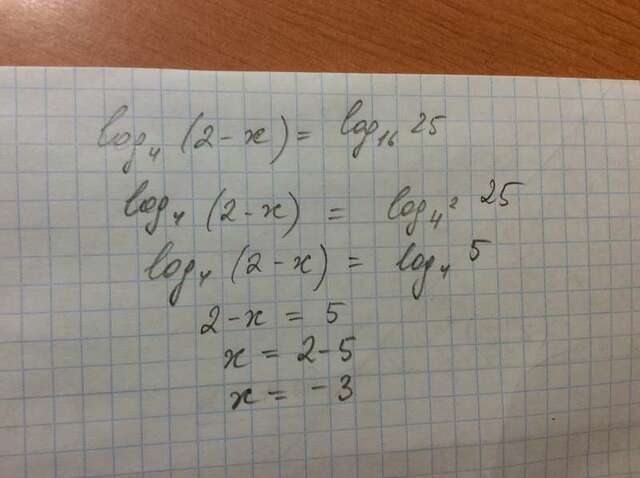 log₄ (2-x) = log₁₆ 25
log₄ (2-x) = log₄² 25
log₄ (2-x) = log₄ 5
2-x = 5
x = 2-5
x = -3